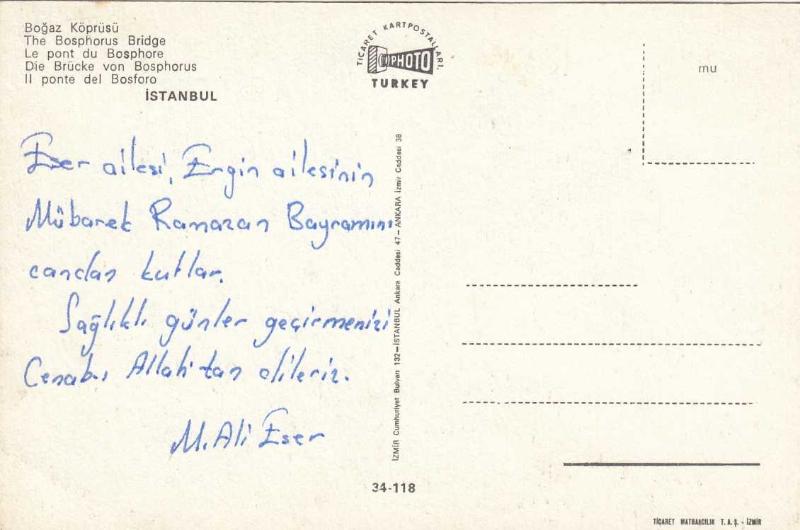 Boğaz Köprüsü
The Bosphorus Bridge
Le pont du Bosphore
Die Brücke von Bosphorus
Il ponte del Bosforo
İSTANBUL
Eser ailesi, Ergin ailesinin
Mübarek Ramazan Bayramını
candan kutlar.
Sağlıklı günler geçirmenizi
Cenabı Allah'tan dileriz.
M. Ali Eser
TİCARET KARTPOSTALLARI,
PHOTO
TURKEY
İZMİR Cumhuriyet Bulvarı 132-İSTANBUL Ankara Caddesi 47-ANKARA İzmir Caddesi 38
mu
34-118
TİCARET MATBAACILIK T. A. Ş. - İZMİR